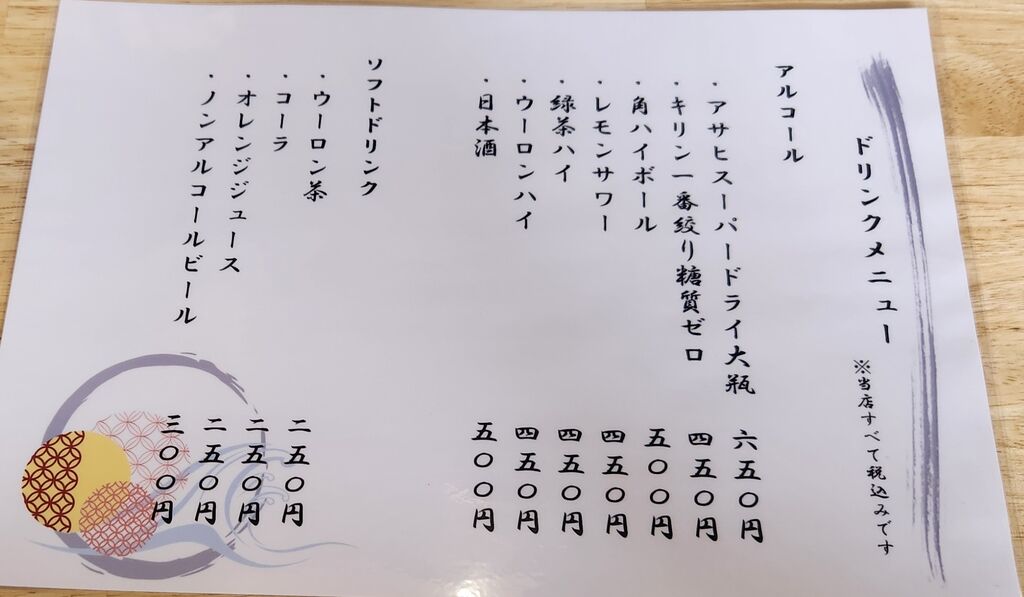 ドリンクメニュー ※当店すべて税込みです
アルコール
・アサヒスーパードライ大瓶 六五〇円
・キリン一番絞り糖質ゼロ 四五〇円
・角ハイボール 五〇〇円
・レモンサワー 四五〇円
・緑茶ハイ 四五〇円
・ウーロンハイ 四五〇円
・日本酒 五〇〇円
ソフトドリンク
・ウーロン茶 二五〇円
・コーラ 二五〇円
・オレンジジュース 二五〇円
・ノンアルコールビール 三〇〇円